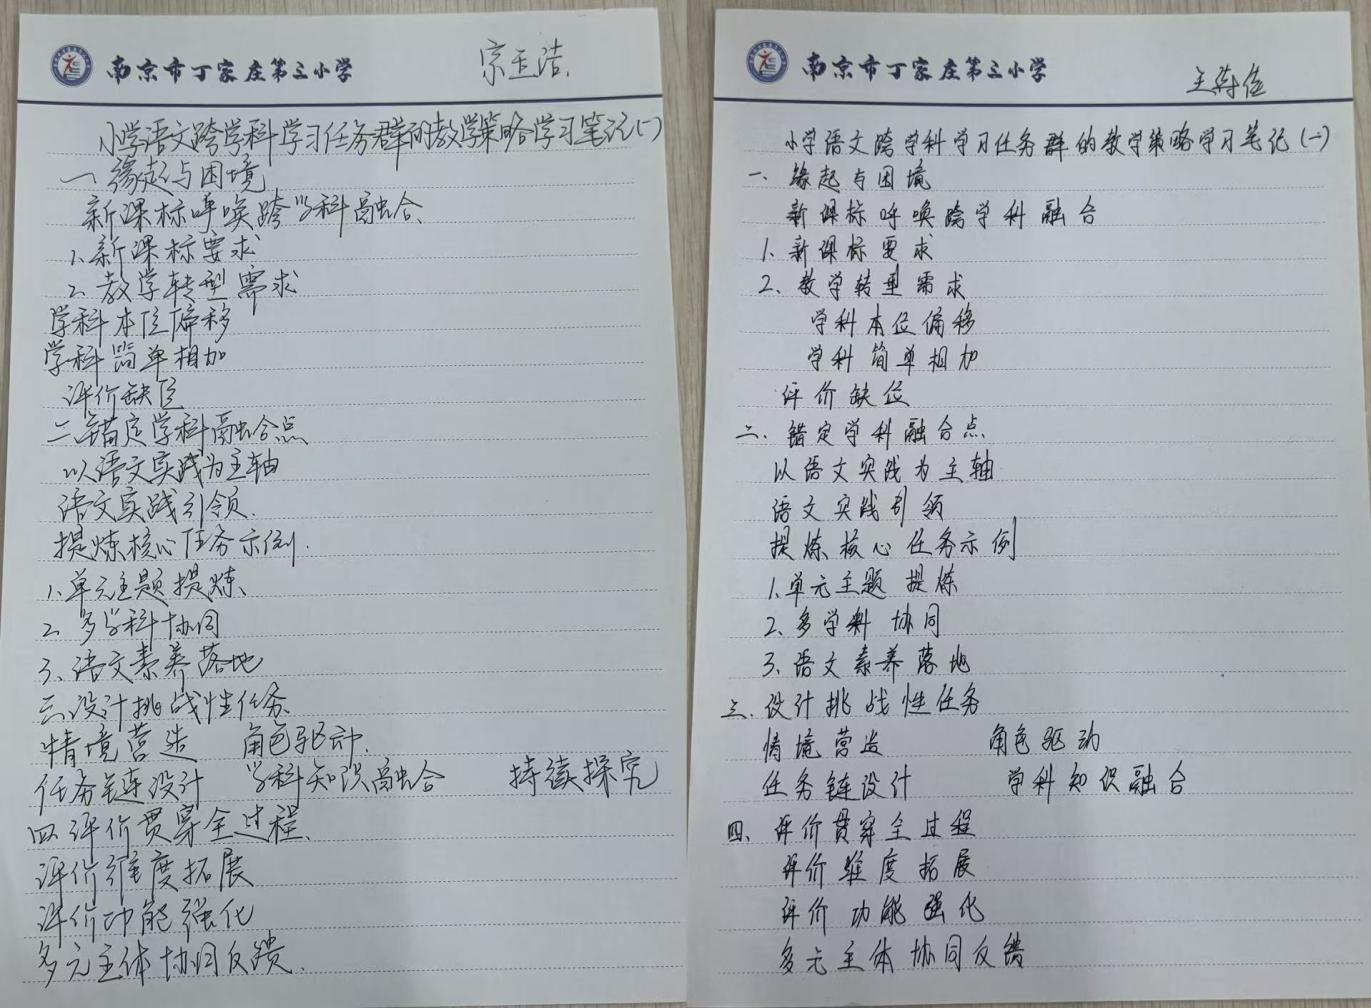 南京市丁家庄第三小学
宗正洁.
小学语文跨学科学习任务群的教学策略学习笔记(一)
一 缘起与困境
新课标呼唤跨学科融合、
1、新课标要求
2、教学转型需求
学科本位偏移
学科简单相加
评价缺位
二、锚定学科融合点
以语文实践为主轴
语文实践引领.
提炼核心任务示例.
1、单元主题提炼、
2、多学科协同
3、语文素养落地
三、设计挑战性任务、
情境营造 角色驱动.
任务链设计 学科知识融合 持续探究
四、评价贯穿全过程、
评价维度拓展
评价功能强化
多元主体协同反馈.
南京市丁家庄第三小学
小学语文跨学科学习任务群的教学策略学习笔记(一)
一、缘起与困境
新课标呼唤跨学科融合
1、新课标要求
2、教学转型需求
学科本位偏移
学科简单相加
评价缺位
二、锚定学科融合点
以语文实践为主轴
语文实践引领
提炼核心任务示例
1、单元主题提炼
2、多学科协同
3、语文素养落地
三、设计挑战性任务
情境营造 角色驱动
任务链设计 学科知识融合
四、评价贯穿全过程
评价维度拓展
评价功能强化
多元主体协同反馈